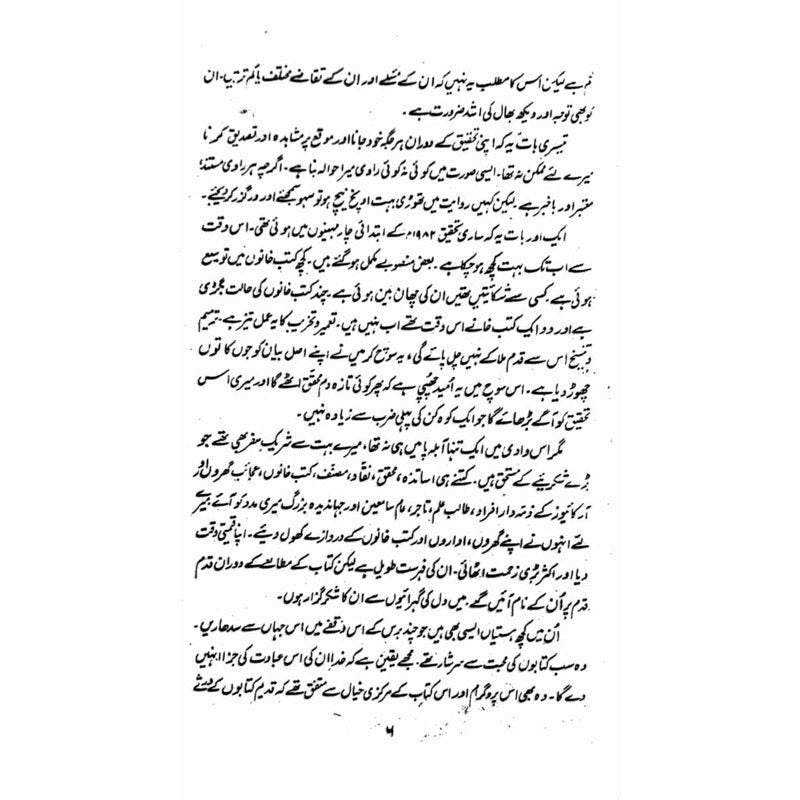 کم ہے لیکن اس کا مطلب یہ نہیں کہ ان کے مسئلے اور ان کے تقاضے مختلف یا کم تر ہیں۔ ان
کو بھی توجہ اور دیکھ بھال کی اشد ضرورت ہے۔
تیسری بات یہ کہ اپنی تحقیق کے دوران ہر جگہ خود جانا اور موقع پر مشاہدہ اور تصدیق کرنا
میرے لئے ممکن نہ تھا۔ ایسی صورت میں کوئی نہ کوئی راوی میرا حوالہ بنا ہے۔ اگرچہ ہر راوی مستند،
معتبر اور باخبر ہے۔ لیکن کہیں روایت میں تھوڑی بہت اونچ نیچ ہو تو سہو سمجھئے اور درگزر کر دیجئے۔
ایک اور بات یہ کہ ساری تحقیق ۱۹۸۲ء کے ابتدائی چار مہینوں میں ہوئی تھی۔ اس وقت
سے اب تک بہت کچھ ہو چکا ہے۔ بعض منصوبے مکمل ہو گئے ہیں۔ کچھ کتب خانوں میں توسیع
ہوئی ہے۔ کسی سے شکایتیں تھیں ان کی چھان بین ہوئی ہے۔ چند کتب خانوں کی حالت بگڑی
ہے اور دو ایک کتب خانے اس وقت تھے اب نہیں ہیں۔ تعمیر و تخریب کا یہ عمل تیز ہے۔ ترمیم
و تنسیخ اس سے قدم ملا کے نہیں چل پائے گی، یہ سوچ کر میں نے اپنے اصل بیان کو جوں کا توں
چھوڑ دیا ہے۔ اس سوچ میں یہ امید چھپی ہے کہ پھر کوئی تازہ دم محقق اٹھے گا اور میری اس
تحقیق کو آگے بڑھائے گا جو ایک کوہ کن کی پہلی ضرب سے زیادہ نہیں۔
مگر اس وادی میں ایک تنہا آبلہ پا میں ہی نہ تھا، میرے بہت سے شریک سفر بھی تھے جو
بڑے شکریئے کے مستحق ہیں۔ کتنے ہی اساتذہ، محقق، نقاد، مصنف، کتب خانوں، عجائب گھروں اور
آرکائیوز کے ذمہ دار افراد، طالب علم، تاجر، عام سامعین اور جہاندیدہ بزرگ میری مدد کو آئے، میرے
لئے انہوں نے اپنے گھروں، اداروں اور کتب خانوں کے دروازے کھول دیئے۔ اپنا قیمتی وقت
دیا اور اکثر بڑی زحمت اٹھائی۔ ان کی فہرست طویل ہے لیکن کتاب کے مطالعے کے دوران قدم
قدم پر اُن کے نام آئیں گے۔ میں دل کی گہرائیوں سے ان کا شکر گزار ہوں۔
اُن میں کچھ ہستیاں ایسی بھی ہیں جو چند برس کے اس وقفے میں اس جہاں سے سدھاریں۔
وہ سب کتابوں کی محبت سے سرشار تھے۔ مجھے یقین ہے کہ خدا ان کی اس عبادت کی جزا انہیں
دے گا۔ وہ بھی اس پروگرام اور اس کتاب کے مرکزی خیال سے متفق تھے کہ قدیم کتابوں کے ورثے
۶